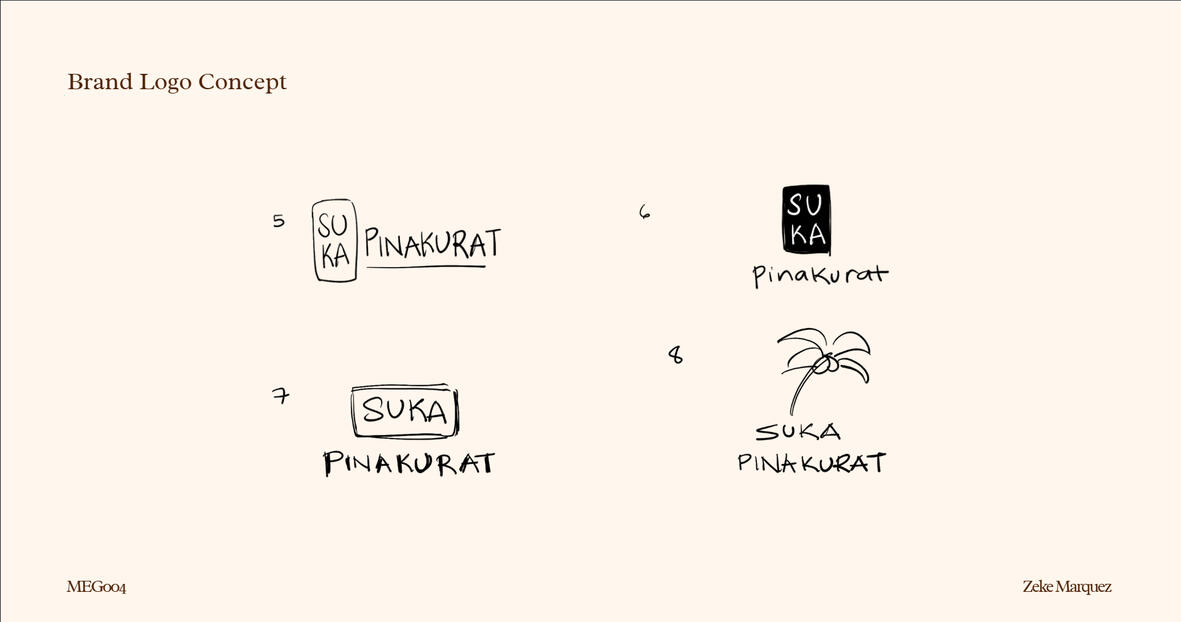 Brand Logo Concept
5
SU
KA
PINAKURAT
6
SU
KA
Pinakurat
7
SUKA
PINAKURAT
8
SUKA
PINAKURAT
MEG004
Zeke Marquez